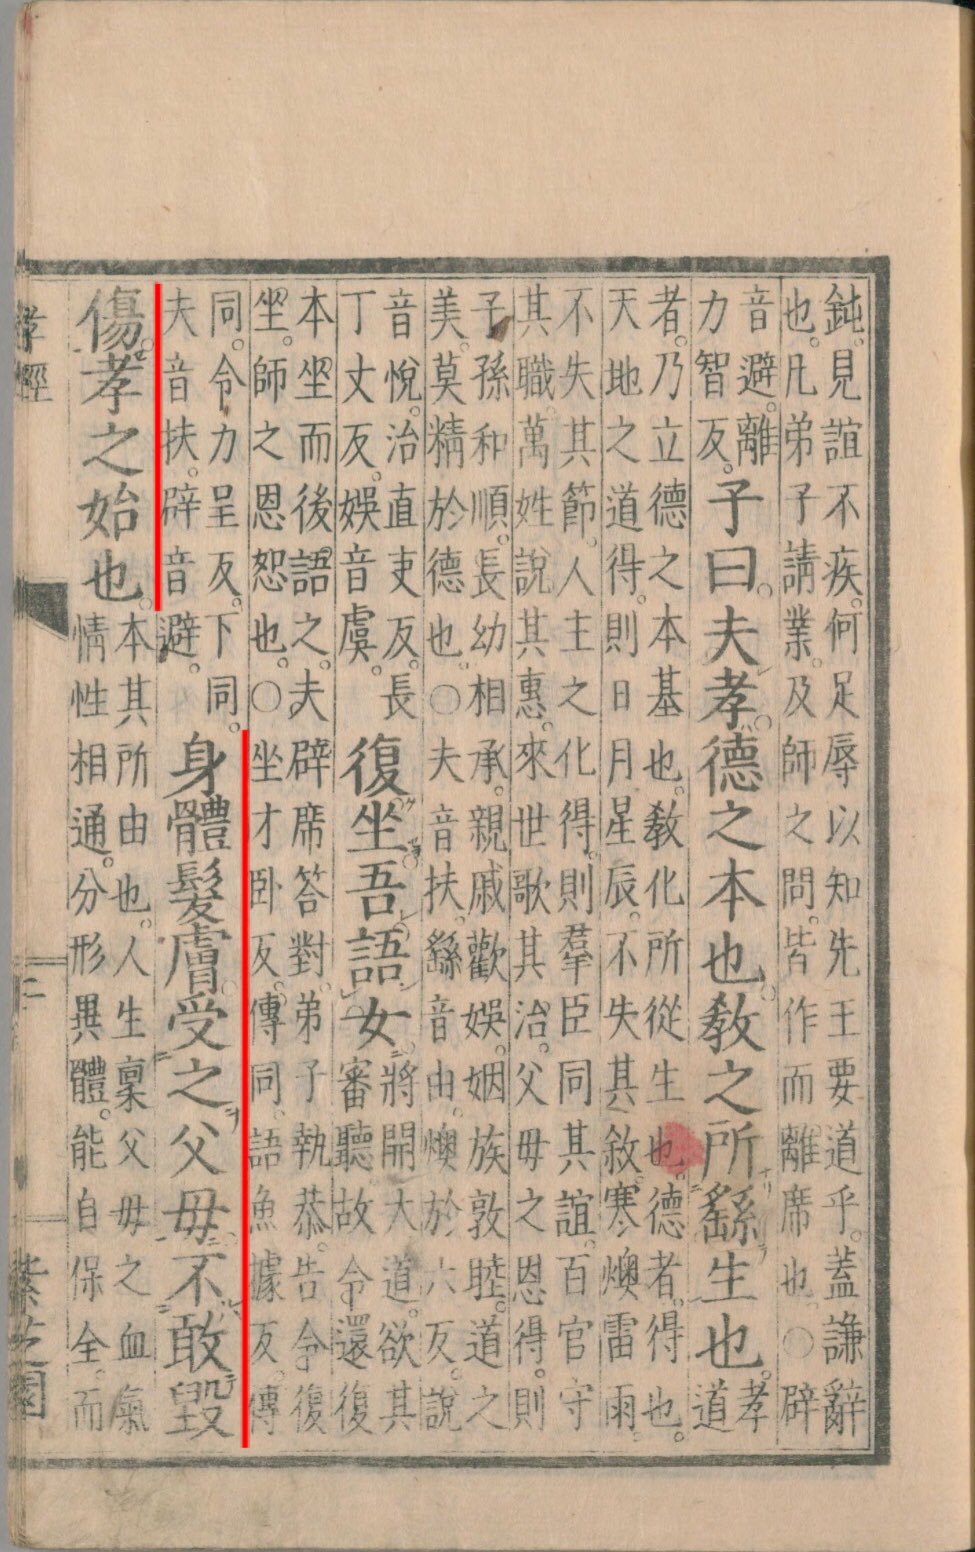 鈍。見誼不疾。何足辱以知先王要道乎。蓋謙辭
也。凡弟子請業。及師之問。皆作而離席也。○辟
音避。離
力智反。
子曰。夫孝。德之本也。教之所繇生也。
孝
道
者。乃立德之本基也。教化所從生也。德者。得也。
天地之道得。則日月星辰。不失其敘。寒燠雷雨。
不失其節。人主之化得。則羣臣同其誼。百官守
其職。萬姓說其惠。來世歌其治。父母之恩得。則
子孫和順。長幼相承。親戚歡娛。姻族敦睦。道之
美。莫精於德也。○夫音扶。繇音由。燠於六反。說
音悅。治直吏反。長
丁丈反。娛音虞。
復坐。吾語女。
將開大道。欲其
審聽。故令還復
本坐而後語之。夫辟席答對。弟子執恭。告令復
坐。師之恩恕也。○坐才卧反。傳同。語魚據反。傳
同。令力呈反。下同。
夫音扶。辟音避。
身體髮膚。受之父母。不敢毀
傷。孝之始也。
本其所由也。人生稟父母之血氣
情性相通。分形異體。能自保全。而
孝經
二
紫芝園